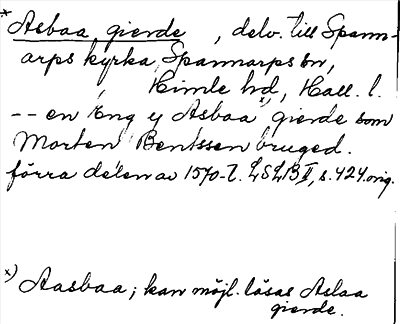 * Asbaa gierde, delv. till Spann-
arps kyrka, Spannarps sn,
Himle hd, Hall. l.
-- en Eng y Asbaa x) gierde som
Morten Bentssen bruged.
förra delen av 1570-t. LSLB II, s. 424. orig.
x) Aasbaa; kan möjl. läsas Aslaa
gierde.